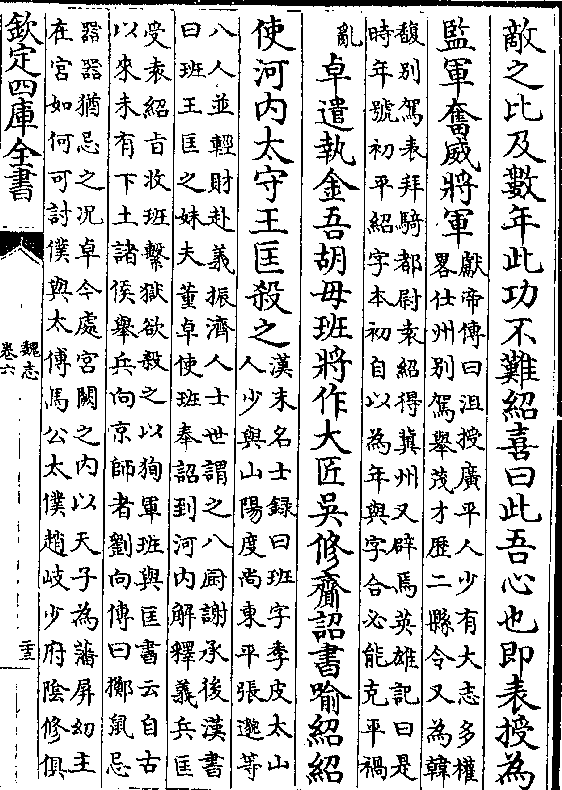 敵之比及數年此功不難紹喜曰此吾心也即表授為
監軍奮威將軍
獻帝傳曰沮授廣平人少有大志多權
畧仕州别駕舉茂才歴二縣令又為韓
馥别駕表拜騎都尉袁紹得冀州又辟焉英雄記曰是
時年號初平紹字本初自以為年與字合必能克平禍
亂
卓遣執金吾胡母班將作大匠吳修齎詔書喻紹紹
使河内太守王匡殺之
漢末名士録曰班字季皮太山
人少與山陽度尚東平張邈等
八人並輕財赴義振濟人士世謂之八厨謝承後漢書
曰班王匡之妹夫董卓使班奉詔到河内解釋義兵匡
受袁紹㫖收班繫獄欲殺之以狥軍班與匡書云自古
以來未有下土諸侯舉兵向京師者劉向傳曰擲鼠忌
器器猶忌之况卓今處宫闕之内以天子為藩屏幼主
在宫如何可討僕與太傅馬公太僕趙岐少府陰修俱
欽定四庫全書
魏志
卷六
二十五